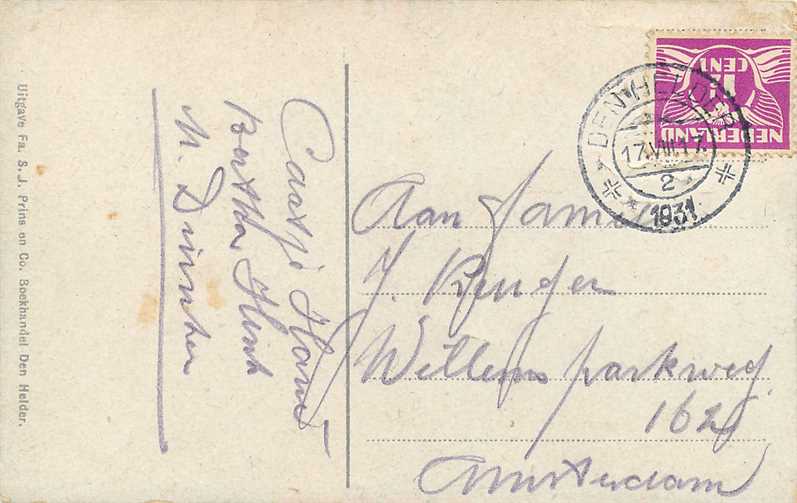 Uitgave Fa. S. J. Prins en Co. Boekhandel Den Helder.
Caatje
Bertha
M.
NEDERLAND
1½
CENT
DEN HELDER
17.VIII.17.
2
1931
Aan Famie
J. Runger
Willemsparkweg
162
Amsterdam